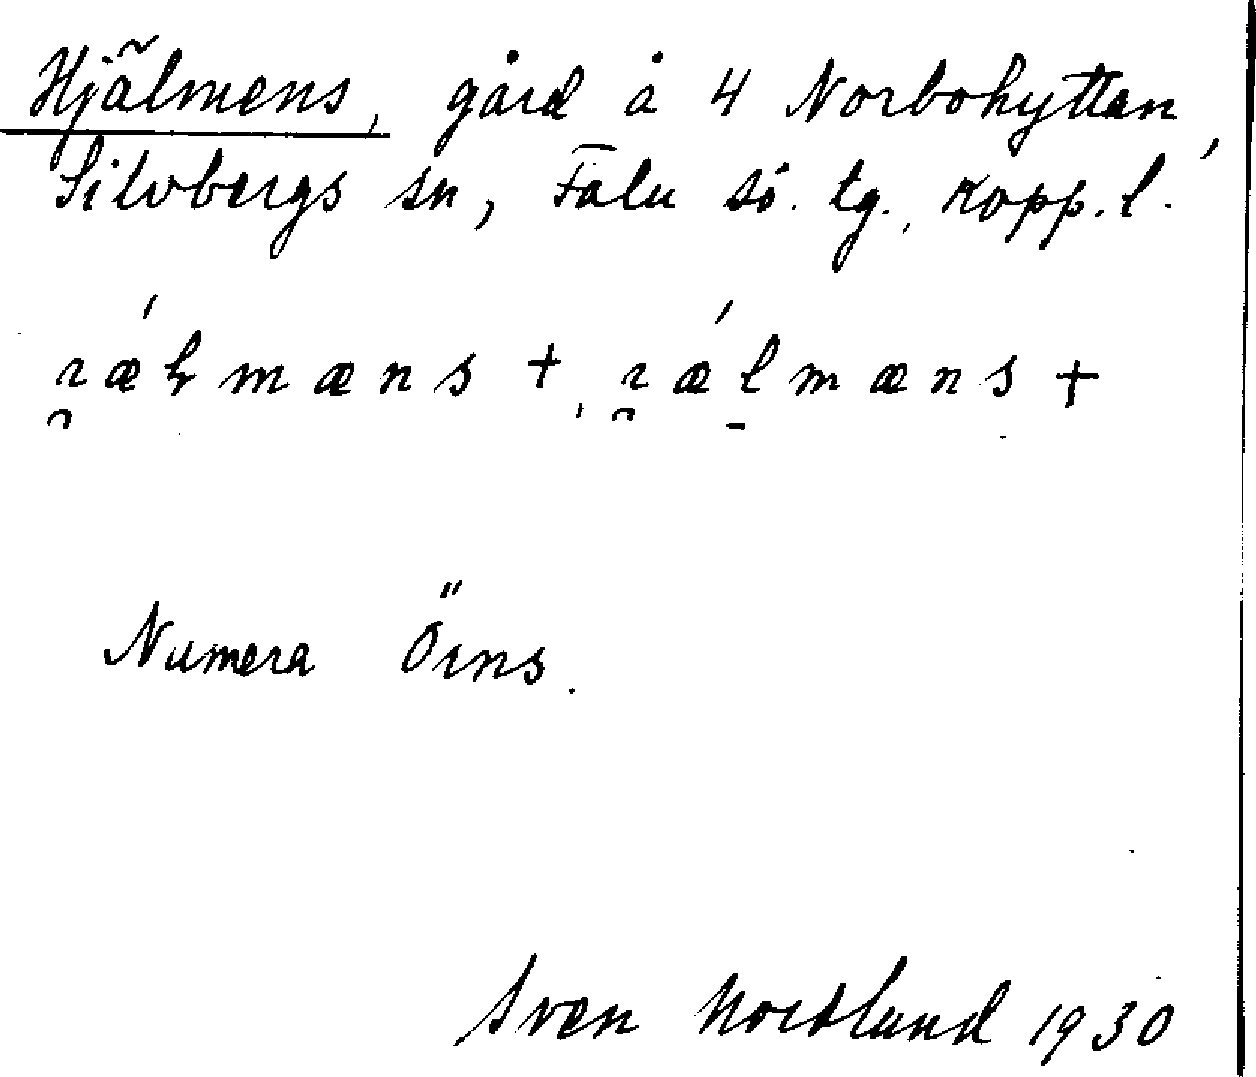 Hjälmens, gård å 4 Norbohyttan,
Silvbergs sn, Falu sö. tg., Kopp. l.
Numera Örns.
Sven Nordlund 1930